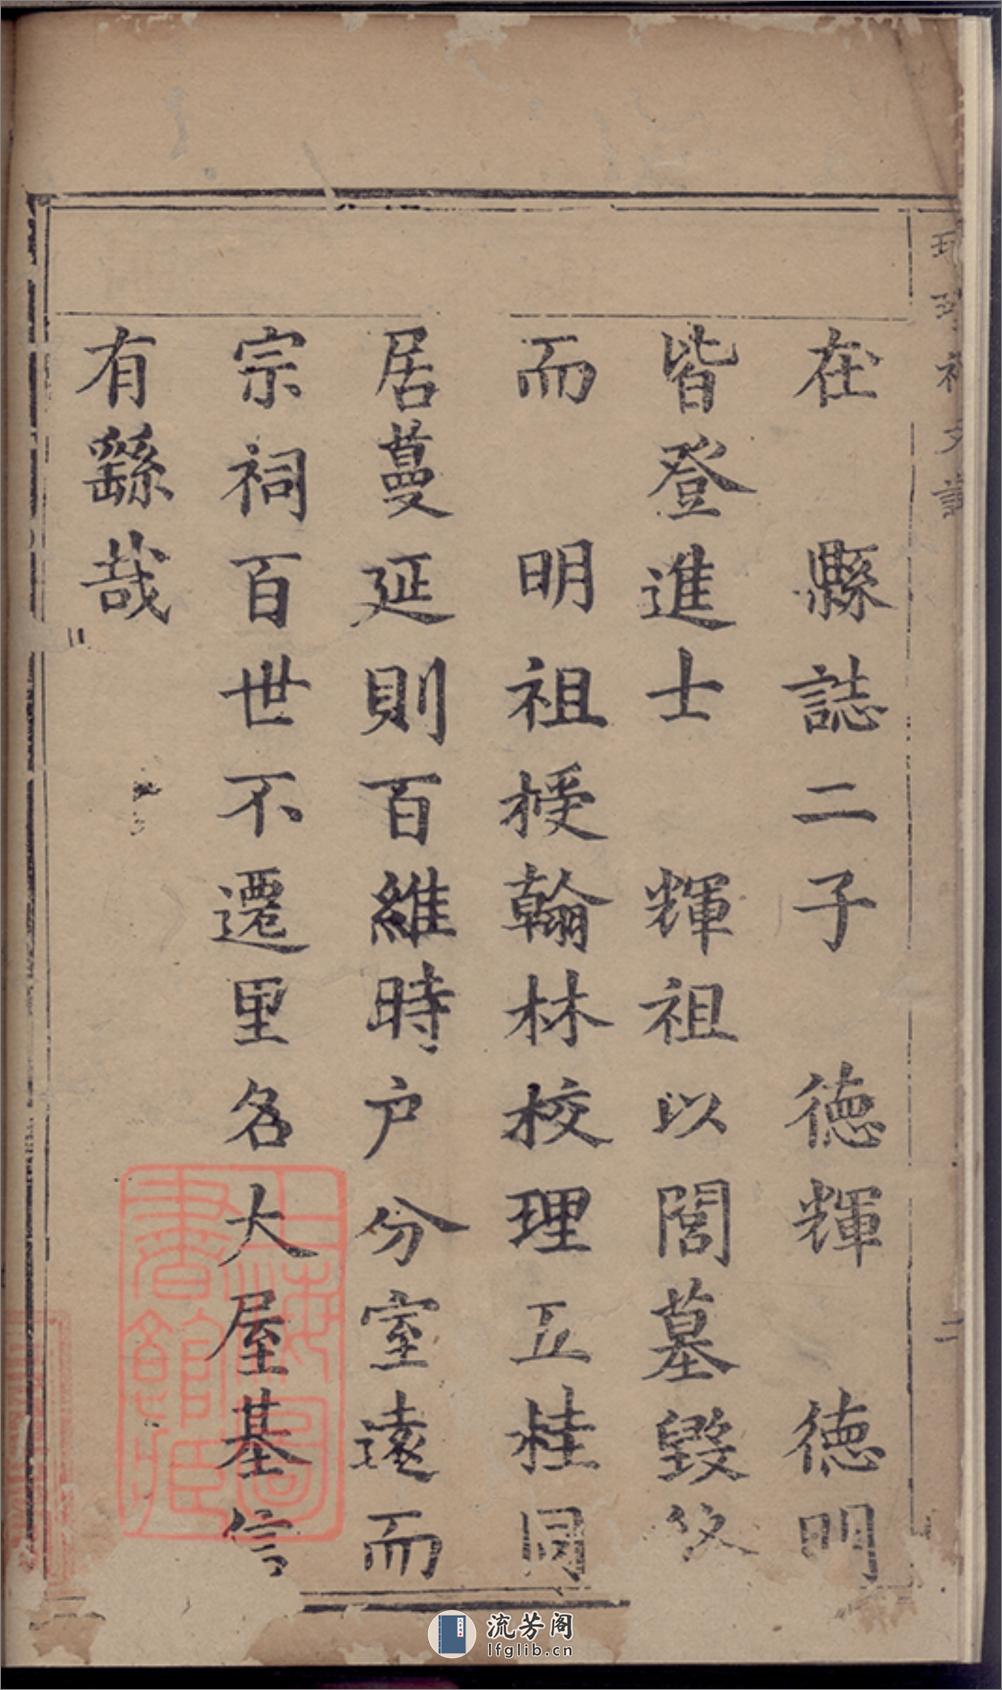 在　縣誌二子　德輝　德明
皆登進士　輝祖以閣墓毀
而　明祖授翰林校理五桂同
居蔓延則百維時户分室遠而
宗祠百世不遷里名大屋基信
有繇哉
二
上海圖書館藏
流芳阁
lfglib.cn